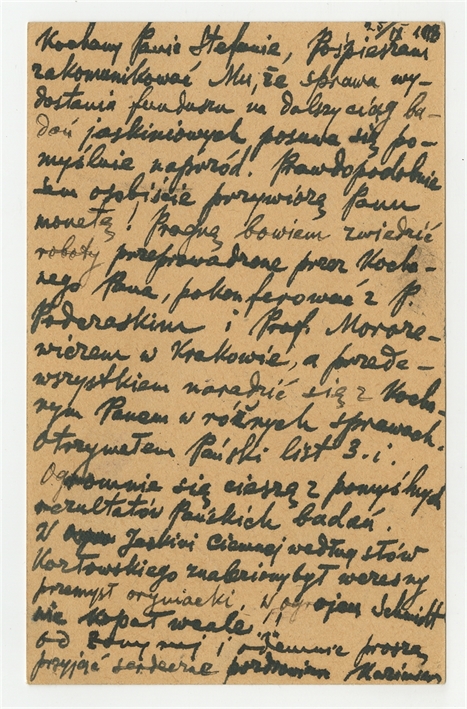 25/IX 191
Kochany Panie Stefanie, Pośpieszam
zakomunikować Mu, że sprawa wy-
dostania funduszu na dalszy ciąg ba-
dań jaskiniowych posuwa się po-
myślnie naprzód. Prawdopodobnie
sam osobiście przywiozę Panu
monetę! Pragnę bowiem zwiedzić
roboty przeprowadzone przez Kocha-
nego Pana, pokonferować z P.
i Prof. Moroze-
wiczem w Krakowie, a przede-
wszystkiem naradzić się z Kocha-
nym Panem w różnych sprawach.
Otrzymałem Pański list 3. i.
Ogromnie się cieszę z pomyślnych
rezultatów Pańskich badań.
W Jaskini Ciemnej według słów
Kozłowskiego znaleziony był wczesny
przemysł oryniacki, w ogrojcu Schmidt
nie kopał wcale!
od żony mej i odemnie proszę
przyjąć serdeczne pozdrowienia